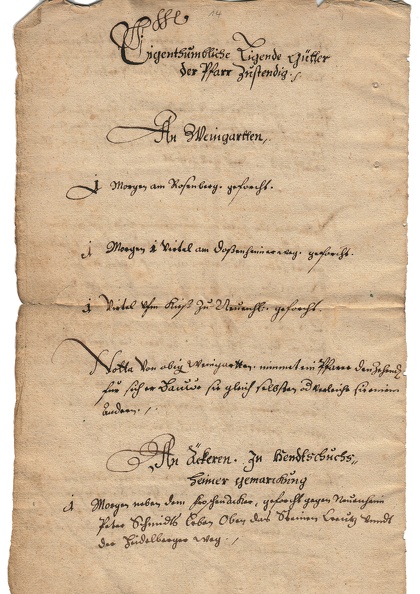 Eigenthumbliche Ligende Gütter
der Pfarr Zustendig.
An Weingartten,
1 Morgen am Rosenberg. geforcht.
1 Morgen 1 Virtel am Doßenheimerweg. geforcht.
1 Virtel Zu geforcht.
Notta Von obig Weingartten nimmt ein Pfarrer den Zehend,
für sich er Bauwe sie gleich selbsten od Verleihe sie einem
andern.
An Äckeren. Zu Hendtschuchs=
heimer Gemarckung
1 Morgen neben dem geforcht gegen Neuenheim
Peter Schmidts Erben Oben das Steinen Creutz vnndt
der Heidelberger weg.